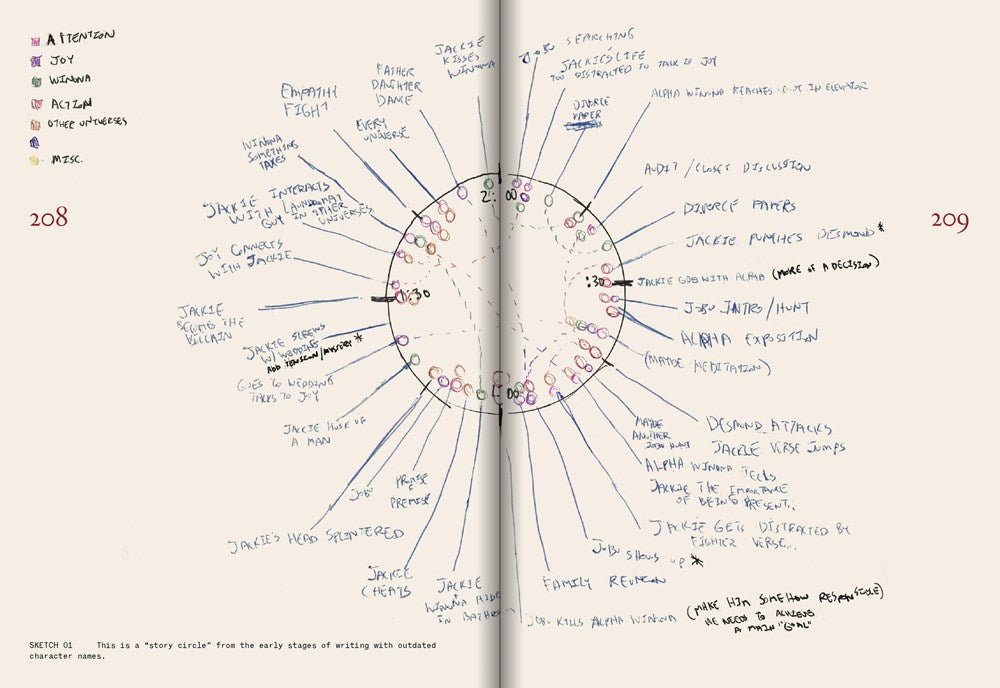 ATTENTION
JOY
WINONA
ACTION
OTHER UNIVERSES
MISC.
208
209
JACKIE
KISSES
WINONA
FATHER
DAUGHTER
DANCE
EMPATHY
FIGHT
EVERY
UNIVERSE
WINONA
SOMETHING
TAXES
JACKIE INTERACTS
WITH LAUNDROMAT
GUY IN OTHER
UNIVERSES
JOY CONNECTS
WITH JACKIE
JACKIE
BECOMES THE
VILLAIN
JACKIE SCREWS
W/ WEDDING
ADD TENSION/MYSTERY *
GOES TO WEDDING
TALKS TO JOY
JACKIE HUSK OF
A MAN
JOBU
PROMISE
PREMISE
JACKIE'S HEAD SPLINTERED
JACKIE
CHEATS
JACKIE
WINONA HIDE
IN BATHR
JOBU SEARCHING
JACKIE'S LIFE
TOO DISTRACTED TO TALK TO JOY
DIVORCE
PAPER
ALPHA WINONA REACHES OUT IN ELEVATOR
AUDIT / CLOSET DISCUSSION
DIVORCE PAPERS
JACKIE PUNCHES DESMOND *
JACKIE GOES WITH ALPHA (MORE OF A DECISION)
JOBU INTRO / HUNT
ALPHA EXPOSITION
(MAYBE MEDITATION)
DESMOND ATTACKS
JACKIE VERSE JUMPS
MAYBE
ANOTHER
JOBU HUNT
ALPHA WINONA TELLS
JACKIE THE IMPORTANCE
OF BEING PRESENT..
JACKIE GETS DISTRACTED BY
FIGHTER VERSE...
JOBU SHOWS UP *
FAMILY REUNION
JOBU KILLS ALPHA WINONA (MAKE HIM SOMEHOW RESPONSIBLE)
HE NEEDS TO ACHIEVE
A MAIN "GOAL"
2:00
:30
1:00
1:30
SKETCH 01 This is a "story circle" from the early stages of writing with outdated
character names.